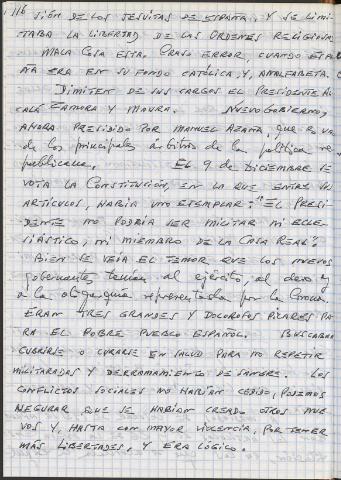 116
SIÓN DE LOS JESUITAS DE ESPAÑA. Y SE LIMI-
TABA LA LIBERTAD DE LAS ORDENES RELIGIOSAS
MALA COSA ESTA. CRASO ERROR, CUANDO ESPA-
ÑA ERA EN SU FONDO CATÓLICA, Y, ANALFABETA.
DIMITEN DE SUS CARGOS EL PRESIDENTE AL-
CALÁ ZAMORA Y MAURA. NUEVO GOBIERNO,
AHORA PRESIDIDO POR MANUEL AZAÑA,
de los principales árbitros de la política re-
publicana. EL 9 DE DICIEMBRE SE
VOTA LA CONSTITUCIÓN, EN LA QUE ENTRE SUS
ARTÍCULOS, HABÍA UNO EJEMPLAR: "EL PRESI-
DENTE NO PODRÍA SER MILITAR NI ECLE-
SIÁSTICO, NI MIEMBRO DE LA CASA REAL".
BIEN SE VEÍA EL TEMOR QUE LOS NUEVOS
gobernantes tenían al ejército, al clero y
a la oligarquía representada por la Corona.
ERAN TRES GRANDES Y DOLOROSOS PILARES PA-
RA EL POBRE PUEBLO ESPAÑOL. BUSCABAN
CUBRIRSE O CURARSE EN SALUD PARA NO REPETIR
MILITARADAS Y DERRAMAMIENTO DE SANGRE. LOS
CONFLICTOS SOCIALES NO HABÍAN CEDIDO, PODEMOS
ASEGURAR QUE SE HABÍAN CREADO OTROS NUE-
VOS Y, HASTA CON MAYOR VIOLENCIA, POR TENER
MÁS LIBERTADES, Y ERA LÓGICO.